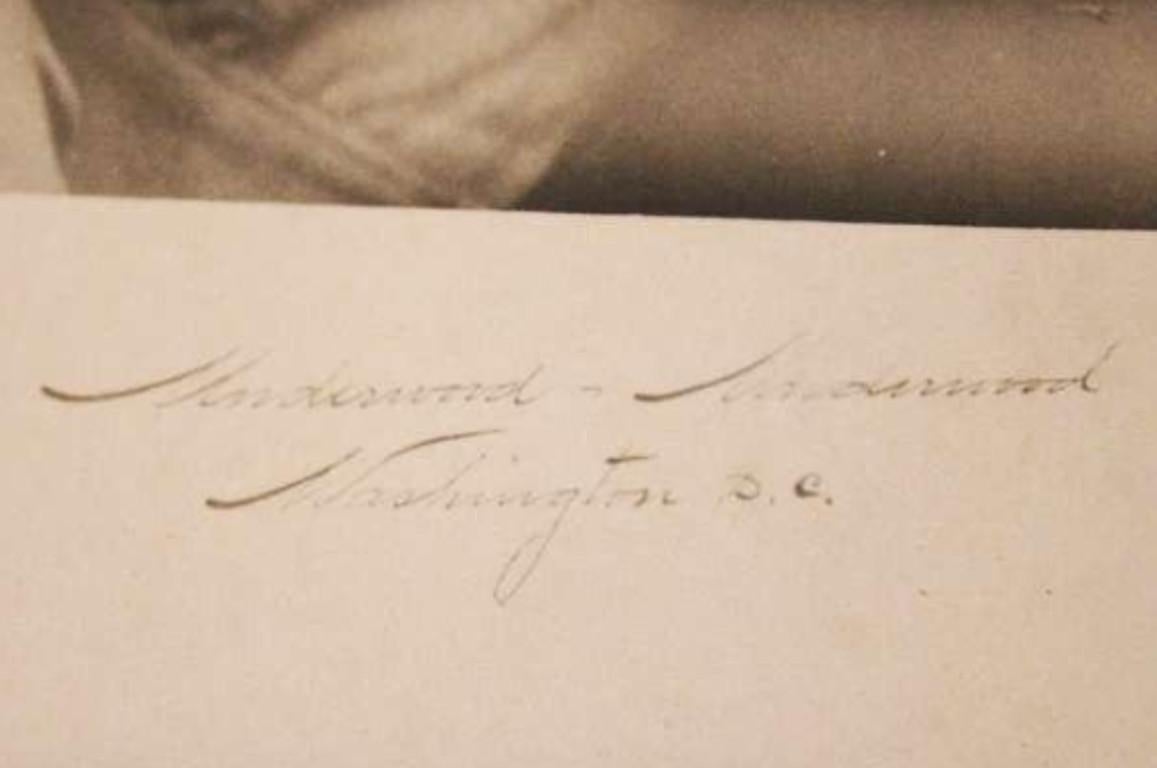 Underwood - Underwood
Washington D.C.